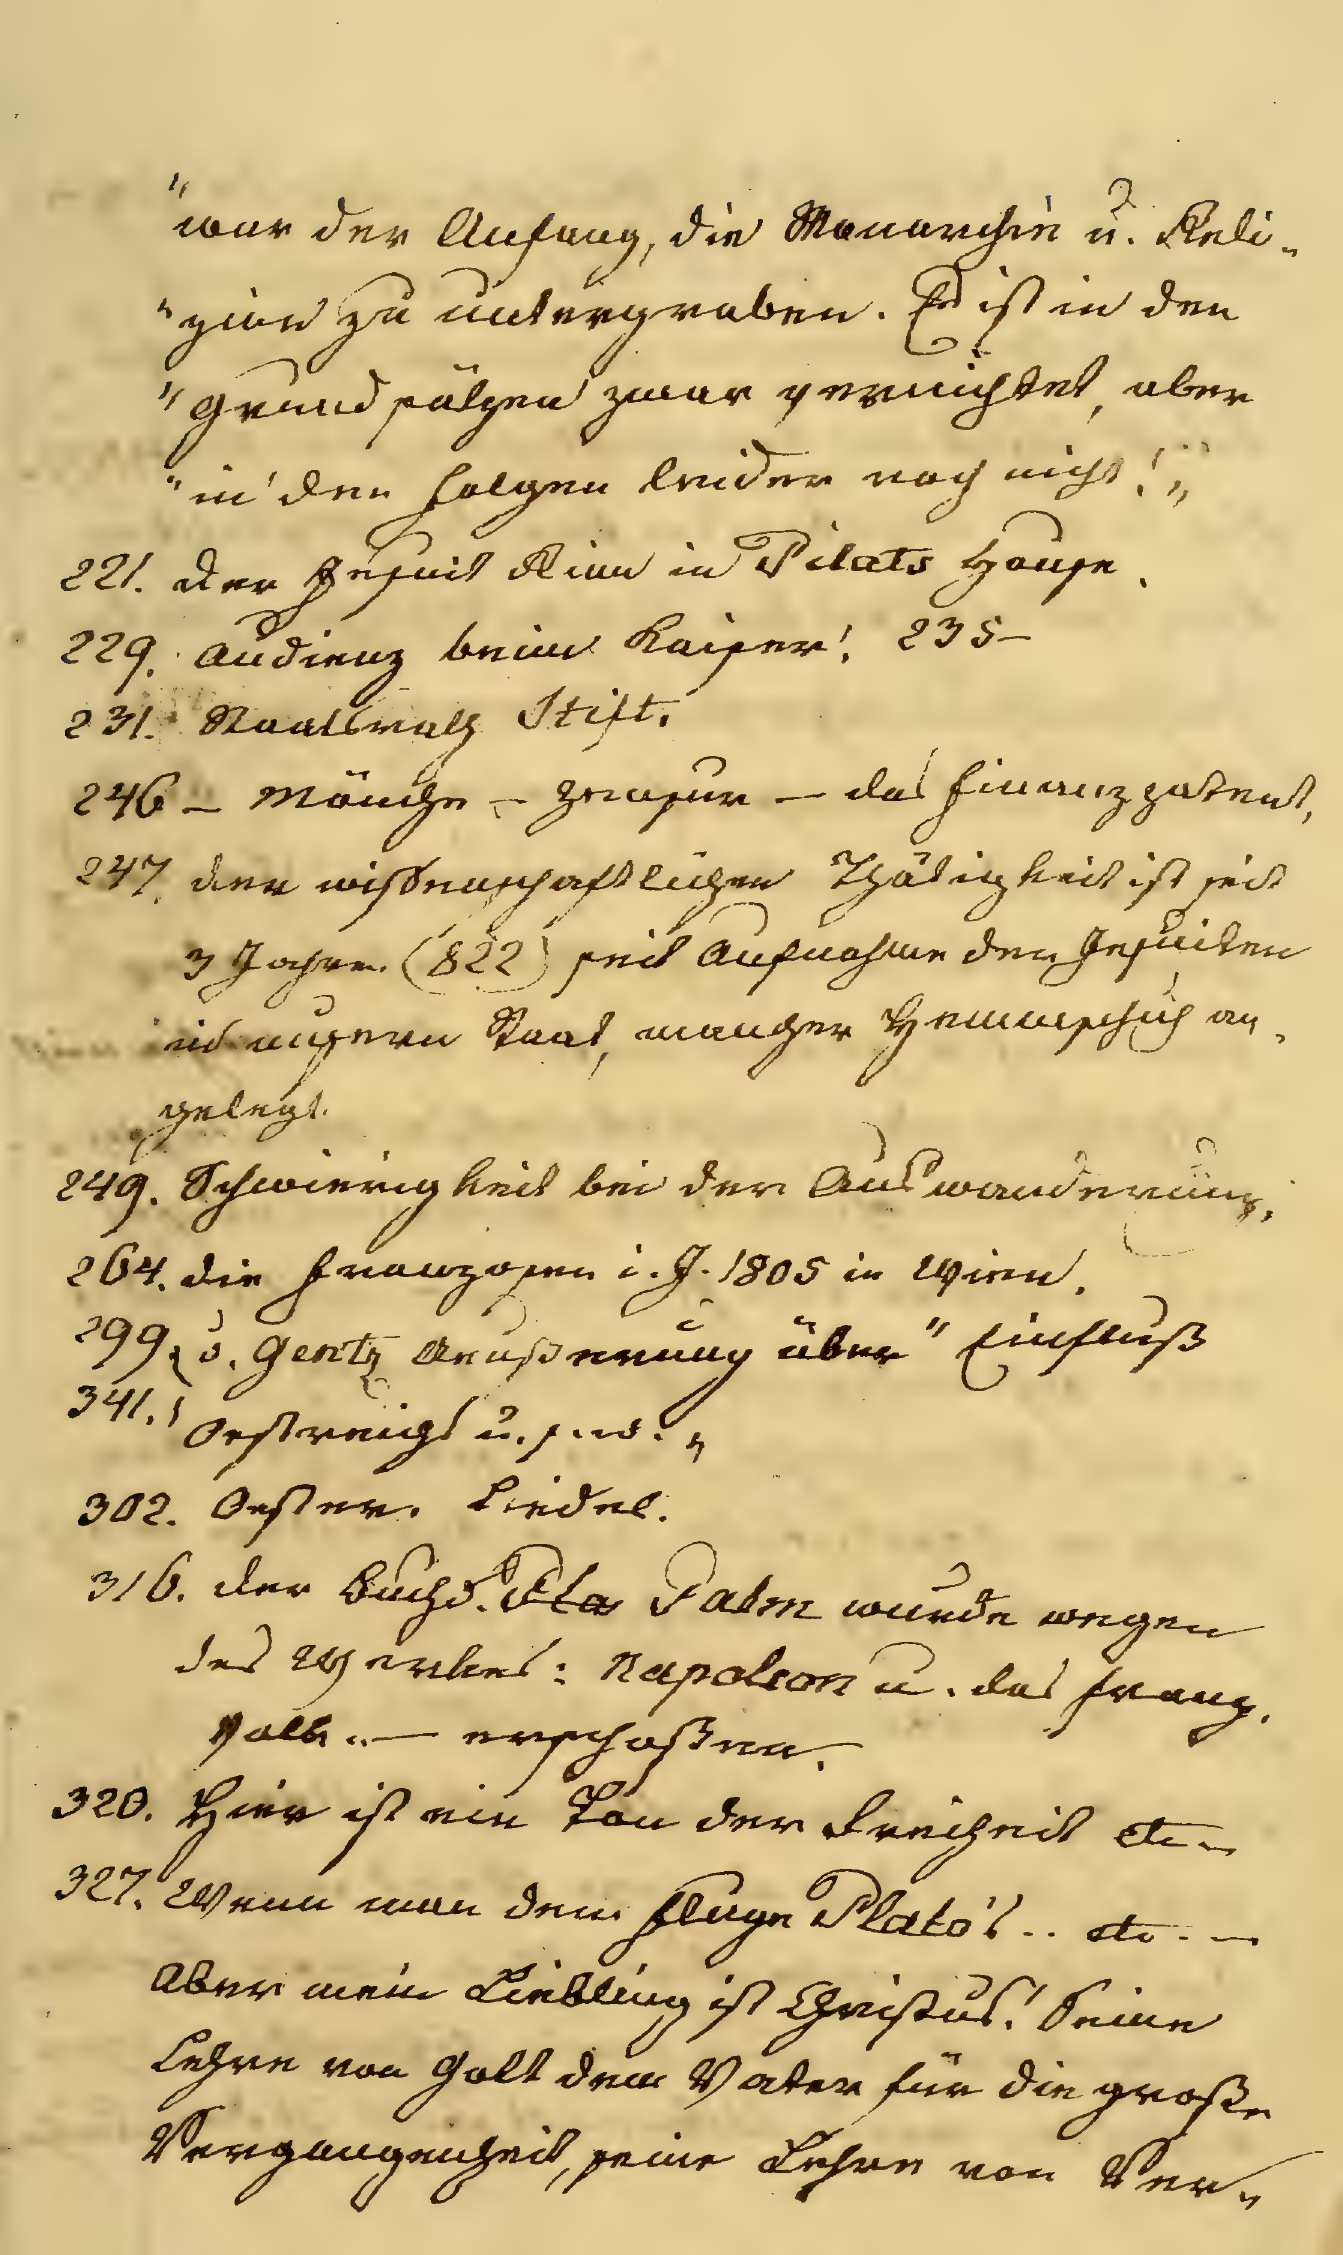 "war der Anfang, die Monarchie u. Reli-
"gion zu untergraben. Er ist in den
"Grundsätzen zwar vernichtet, aber
"in den Folgen leider noch nicht!"
221. der Jesuit Rinn in Pilats Hause.
229. Audienz beim Kaiser! 235–
231. Staatsrath Stift.
246 – Mönche – Zensur – das Finanzpatent,
247. der wissenschaftlichen Thätigkeit ist seit
3 Jahren (822) seit Aufnahme der Jesuiten
in unsern Staat, mancher Hemmschuh an-
gelegt.
249. Schwierigkeit bei der Auswanderung.
264. die Franzosen i. J. 1805 in Wien.
299. v. Gentz Aeußerung über "Einfluß
341. Oestreichs u. s. w. "
302. Oester. Liedel.
316. der Buchd. Pla Palm wurde wegen
des Werkes: Napoleon u. das franz.
Volk .. – erschoßen.
320. Hier ist ein Ton der Freiheit etc –
327. Wenn man dem Fluge Plato's .. etc. –
Aber mein Liebling ist Christus! Seine
Lehre von Gott dem Vater für die große
Vergangenheit, seine Lehre von Ver-